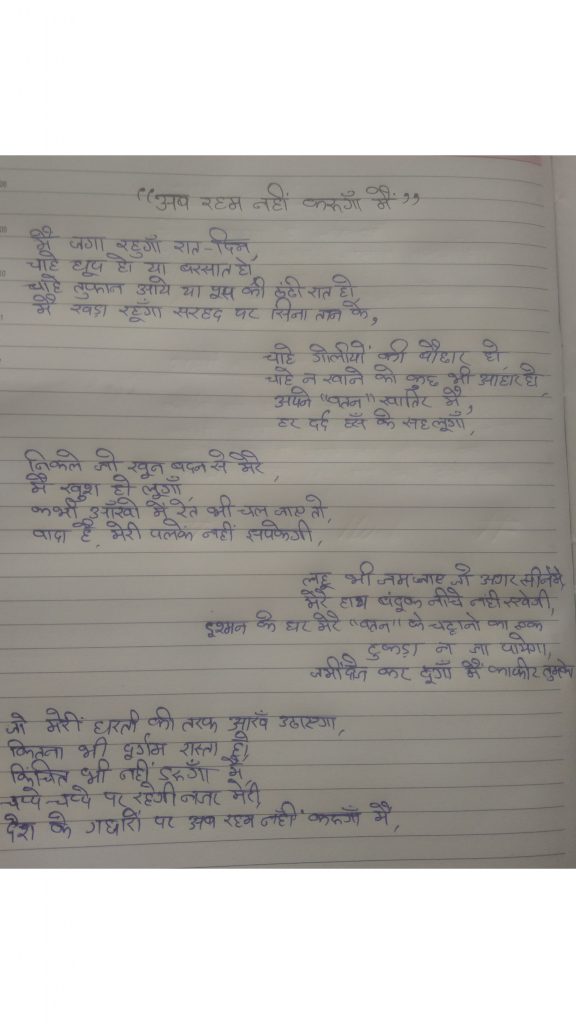 “अब रहम नहीं करूगाँ मैं”
मैं जगा रहुगाँ रात-दिन,
चाहे धूप हो या बरसात हो,
चाहे तुफान आये या पूस की ठंडी रात हो,
मैं खड़ा रहूँगा सरहद पर सिना तान के,
चाहे गोलीयों की बौछार हो,
चाहे न खाने को कुछ भी आहार हो,
अपने "वतन" खातिर मैं,
हर दर्द हँस के सह लूगाँ,
निकले जो खून बदन से मेरे,
मैं खुश हो लूगाँ,
कभी आँखो में रेत भी चल जाए तो,
वादा है, मेरी पलके नहीं झपकेगी,
लहू भी जम जाए जो अगर सीनेमें,
मेरे हाथ बंदूक नीचे नही रखेगी,
दुश्मन के घर मेरे "वतन" के चट्टानो का एक
टुकड़ा न जा पायेगा,
जमीदोज कर दूगाँ मैं काफीर तुमको
जो मेरी धरती की तरफ आखँ उठाएगा,
कितना भी दूर्गम रास्ता हो,
किंचित भी नहीं डरूगाँ मैं,
चप्पे-चप्पे पर रहेगी नजर मेरी,
देश के गद्दारों पर अब रहम नहीं करूगाँ मैं,